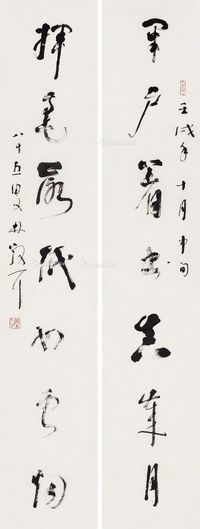 壬戌年十月中旬
閉户著書真歲月
揮毫落紙如雲烟
八十五叟林散耳